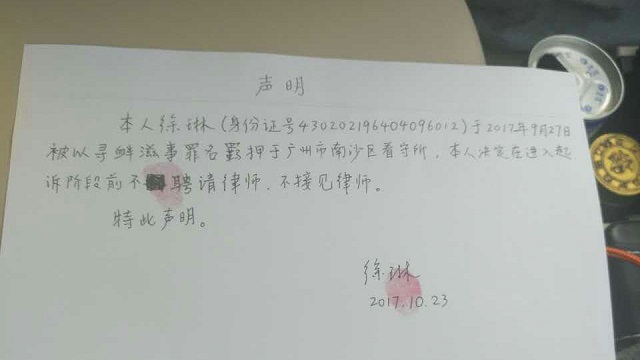 声明
本人徐琳(身份证号430202196404096012)于2017年9月27日
被以寻衅滋事罪名羁押于广州市南沙区看守所,本人决定在进入起
诉阶段前不聘请律师、不接见律师。
特此声明。
徐琳
2017.10.23